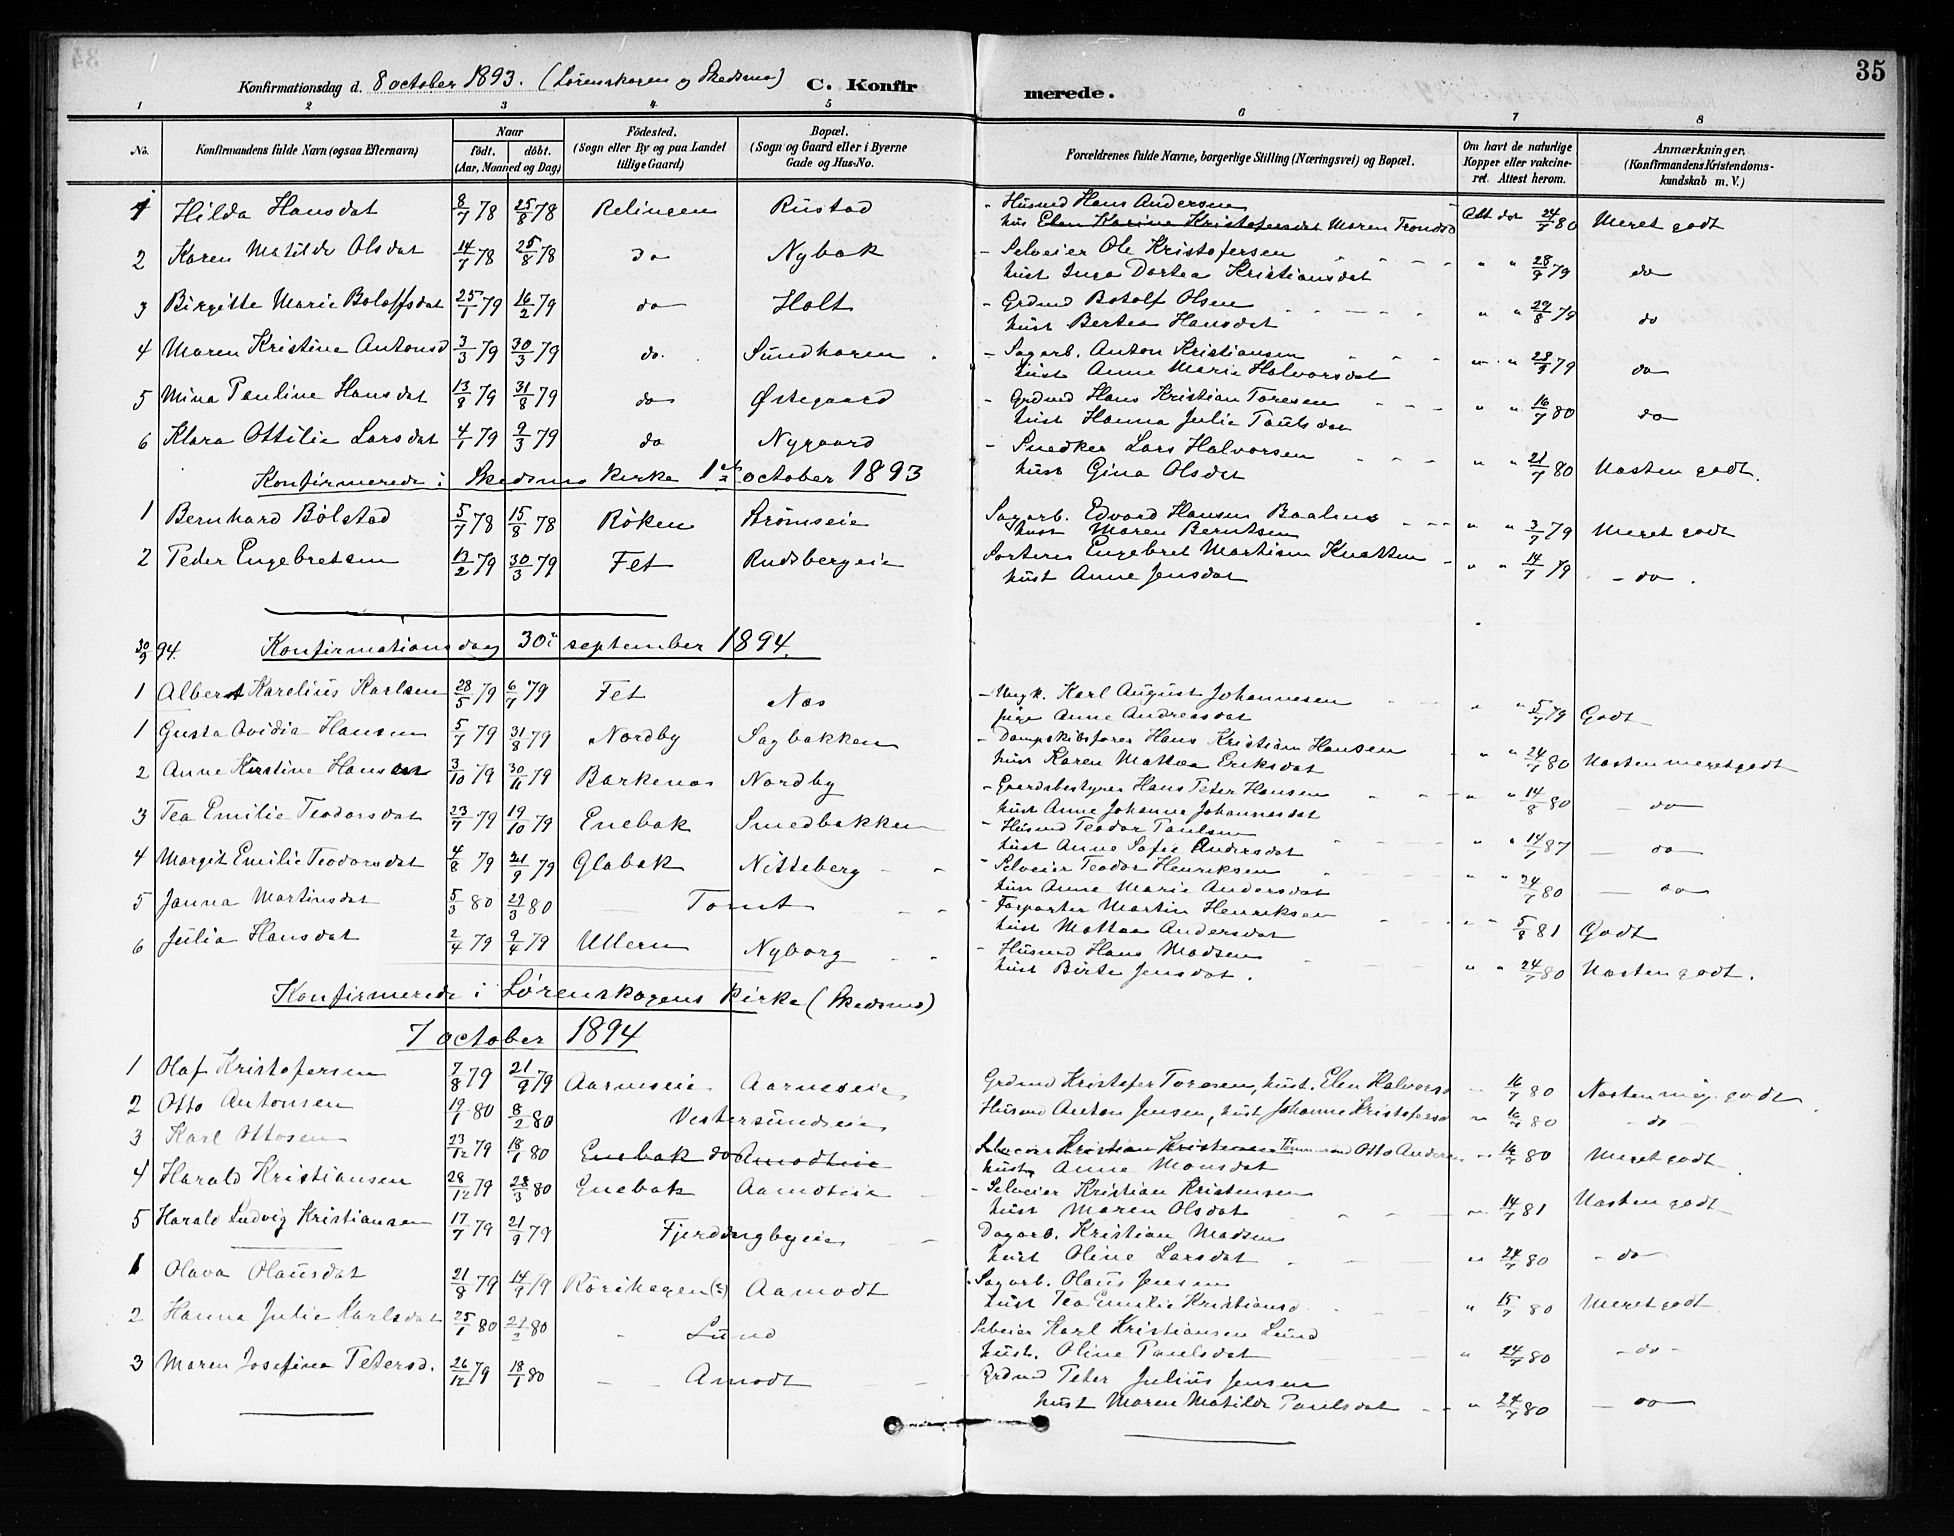 35
Konfirmationsdag d. 8 october 1893. (Lørenskogen og Skedsmo) C. Konfirmerede.
1 2 3 4 5 6 7 8
No. Konfirmandens fulde Navn (ogsaa Efternavn) Naar födt. döbt. (Aar, Maaned og Dag) Födested. (Sogn eller By og paa Landet tillige Gaard) Bopæl. (Sogn og Gaard eller i Byerne Gade og Hus-No. Forældrenes fulde Navne, borgerlige Stilling (Næringsvei) og Bopæl. Om havt de naturlige Kopper eller vakcineret. Attest herom. Anmærkninger, (Konfirmandens Kristendomskundskab m. V.)
1 Hilda Hansdat 8/7 78 25/8 78 Relingen Rustad - Husmd Hans Andersen
hus Elen Karine Kristofersdat Maren Trondsd Att dat 24/7 80 Meget godt
2 Karen Matilde Olsdat 14/7 78 25/8 78 do Nybak - Selveier Ole Kristofersen
hust Inga Dortea Kristiansdat " " 28/9 79 do
3 Birgitte Marie Boloffsdat 25/1 79 16/2 79 do Holt - Grdmd Botolf Olsen
hust Bertea Hansdat " " 29/8 79 do
4 Maren Kristine Antonsd 3/3 79 30/3 79 do. Sundhagen - Sagarb. Anton Kristiansen
hust Anne Marie Halvorsdat " " 28/9 79 do
5 Mina Pauline Hansdat 13/8 79 31/8 79 do Østegaard - Grdmd Hans Kristian Toresen
hust Hanna Julie Paulsdat " " 16/7 80 do
6 Klara Ottilie Larsdat 4/1 79 9/3 79 do Nygaard - Snedker Lars Halvorsen
hust Gina Olsdat " " 21/7 80 Næsten godt.
Konfirmerede i Skedsmo kirke 1st october 1893
1 Bernhard Bølstad 5/7 78 15/8 78 Røken Strømseie Sagarb. Edvard Hansen Baalsrud
hust Maren Berntsen " " 3/7 79 Meget godt
2 Peder Engebretsen 13/2 79 30/3 79 Fet Rudsbergeie Sorterer Engebret Martisen Knatten
hust Anne Jensdat " " 14/7 79 - do.
30/9 94. Konfirmationsdag 30 september 1894.
1 Albert Karelius Karlsen 28/5 79 6/7 79 Fet Nes - Ungk. Karl August Johannesen
pige Anne Andreasdat " " 5/7 79 Godt
1 Gusta Ovidia Hansen 5/7 79 31/8 79 Nordby Sagbakken - Dampskibsfører Hans Kristian Hansen
hust Karen Mathea Eriksdat " " 24/7 80 Næsten meget godt
2 Anne Kirstine Hansdat 3/10 79 30/11 79 Barkenæs Nordby - Gaardsbestyrer Hans Peter Hansen
hust Anne Johanne Johannesdat " " 14/8 80 - do
3 Tea Emilie Teodorsdat 23/7 79 19/10 79 Enebak Smedbakken - Husmd Teodor Paulsen
hust Anne Sofie Andersdat " " 14/7 87 - do
4 Margit Emilie Teodorsdat 4/8 79 21/9 79 Glabak Nitteberg - Selveier Teodor Henriksen
hus Anne Marie Andersdat " " 24/7 80 - do
5 Janna Martinsdat 5/3 80 29/3 80 Tomt - Forpagter Martin Henriksen
hust Mathea Andersdat " " 5/8 81 Godt
6 Julia Hansdat 2/4 79 9/4 79 Ullern Nyborg - Husmd Hans Madsen
hust Birte Jensdat. " " 24/7 80 Næsten godt.
Konfirmerede i Lørenskogens kirke (Skedsmo)
7 october 1894
1 Olaf Kristofersen 7/8 79 21/9 79 Aarneseie Aarneseie Grdmd Kristofer Toresen, hust. Elen Halvorsd 16/7 80 Næsten meg. godt
2 Otto Antonsen 19/1 80 8/2 80 Vestersundseie Husmd Anton Jensen, hust Johanne Kristofersd 16/7 80 - do -
3 Karl Ottosen 23/12 79 18/1 80 Enebak do Aamodteie Selveier Kristian Kristensen Tømmermd Otto Andersen
hust Anne Monsdat 16/7 80 Meget godt
4 Harald Kristiansen 28/12 79 28/3 80 Enebak Aamodteie - Selveier Kristian Kristensen
hust Maren Olsdat 14/7 81 Næsten godt
5 Harald Ludvig Kristiansen 17/7 79 21/9 79 Fjerdingbyeie Dagarb. Kristian Madsen
hust Oline Larsdat " 24/7 80 - do
1 Olava Olausdat 21/8 79 14/9 79 Rörihagen Aamodt Sagarb. Olaus Jensen
hust Tea Emilie Kristiansd. " 15/7 80 Meget godt
2 Hanna Julie Karlsdat 25/1 80 29/2 80 - Lund Selveier Karl Kristiansen Lund
hust. Oline Paulsdat " 24/7 80 - do -
3 Maren Josefine Petersd. 26/12 79 18/1 80 - Amodt Grdmd Peter Julius Jensen
hust Maren Matilde Paulsdat " 24/7 80 - do